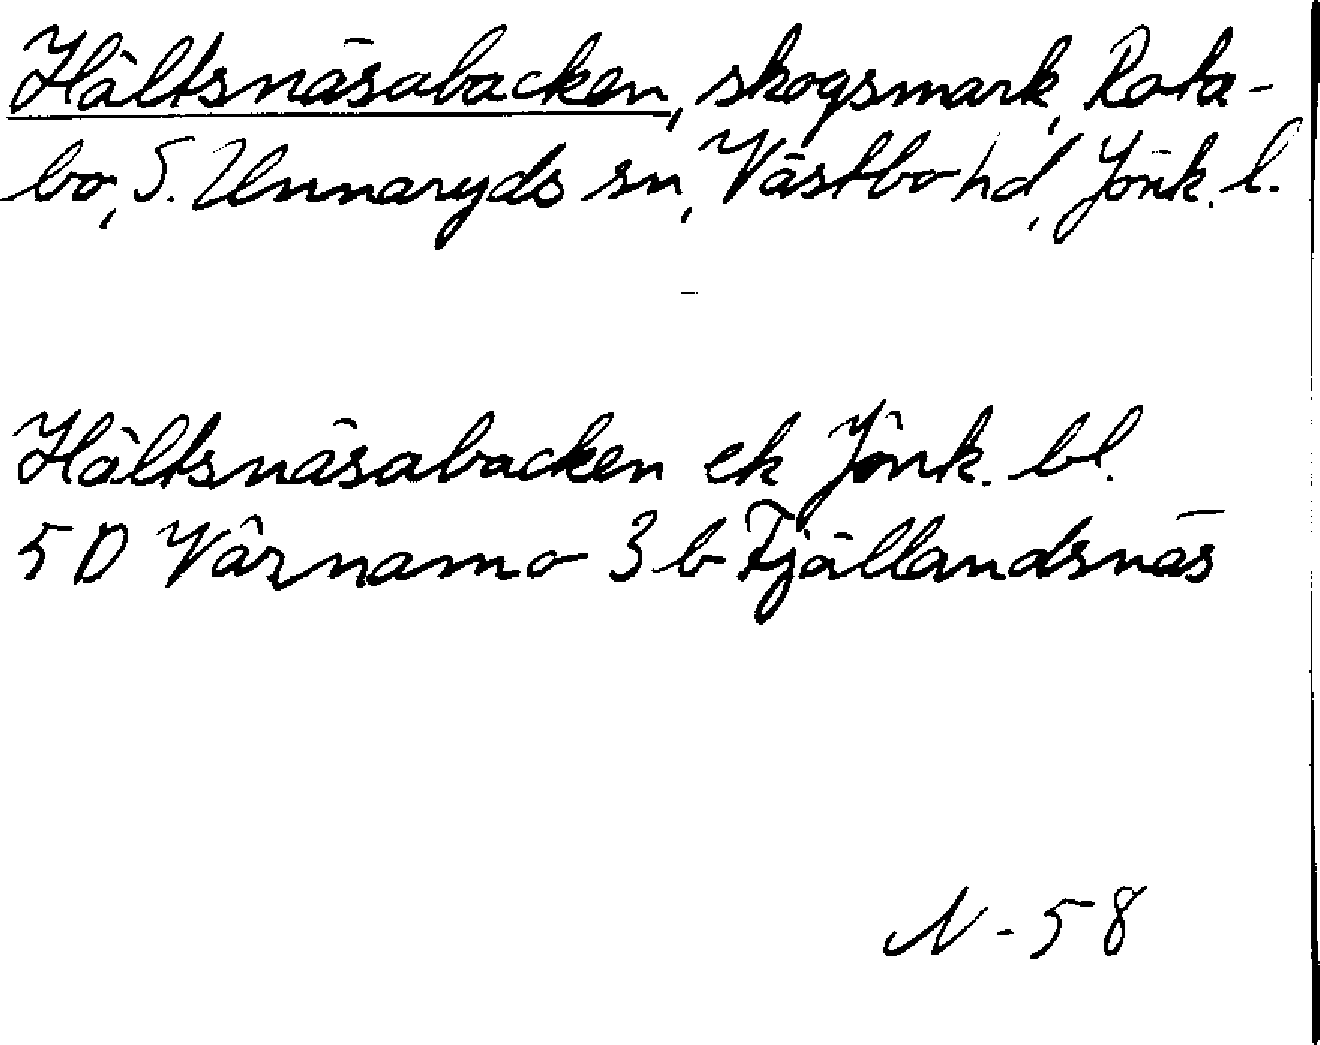 Hältsnäsabacken, skogsmark, Rata-
bo, S. Unnaryds sn, Västbo hd, Jönk. l.
Hältsnäsabacken ek Jönk. bl.
5 D Värnamo 3 b Fjällandsnäs
N - 58